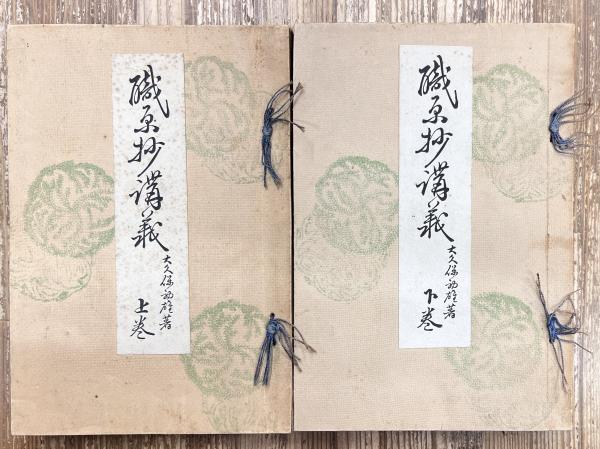 職原抄講義
大久保初雄著
上巻
職原抄講義
大久保初雄著
下巻